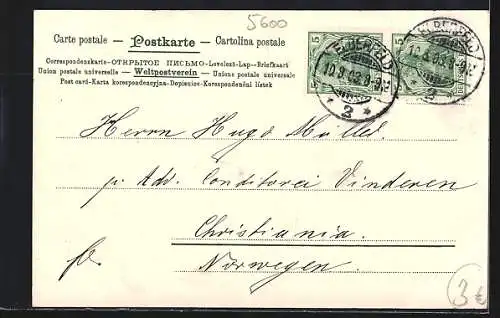 5600
Carte postale — Postkarte — Cartolina postale
Correspondenzkarte–ОТКРЫТОЕ ПИСЬМО–Levelezö-Lap–Briefkaart
Union postale universelle — Weltpostverein — Unione postale universale
Post card–Karta korespondencyjna–Dopisnice–Korespondenční lístek
5
5
ELBERFELD
10.9.03.8-9N.
2
ELBERFELD
10.9.03.8-9N.
2
Herrn Hugo Müller
p. Adr. Conditorei Vinderen
Christiania.
Norwegen.
3€